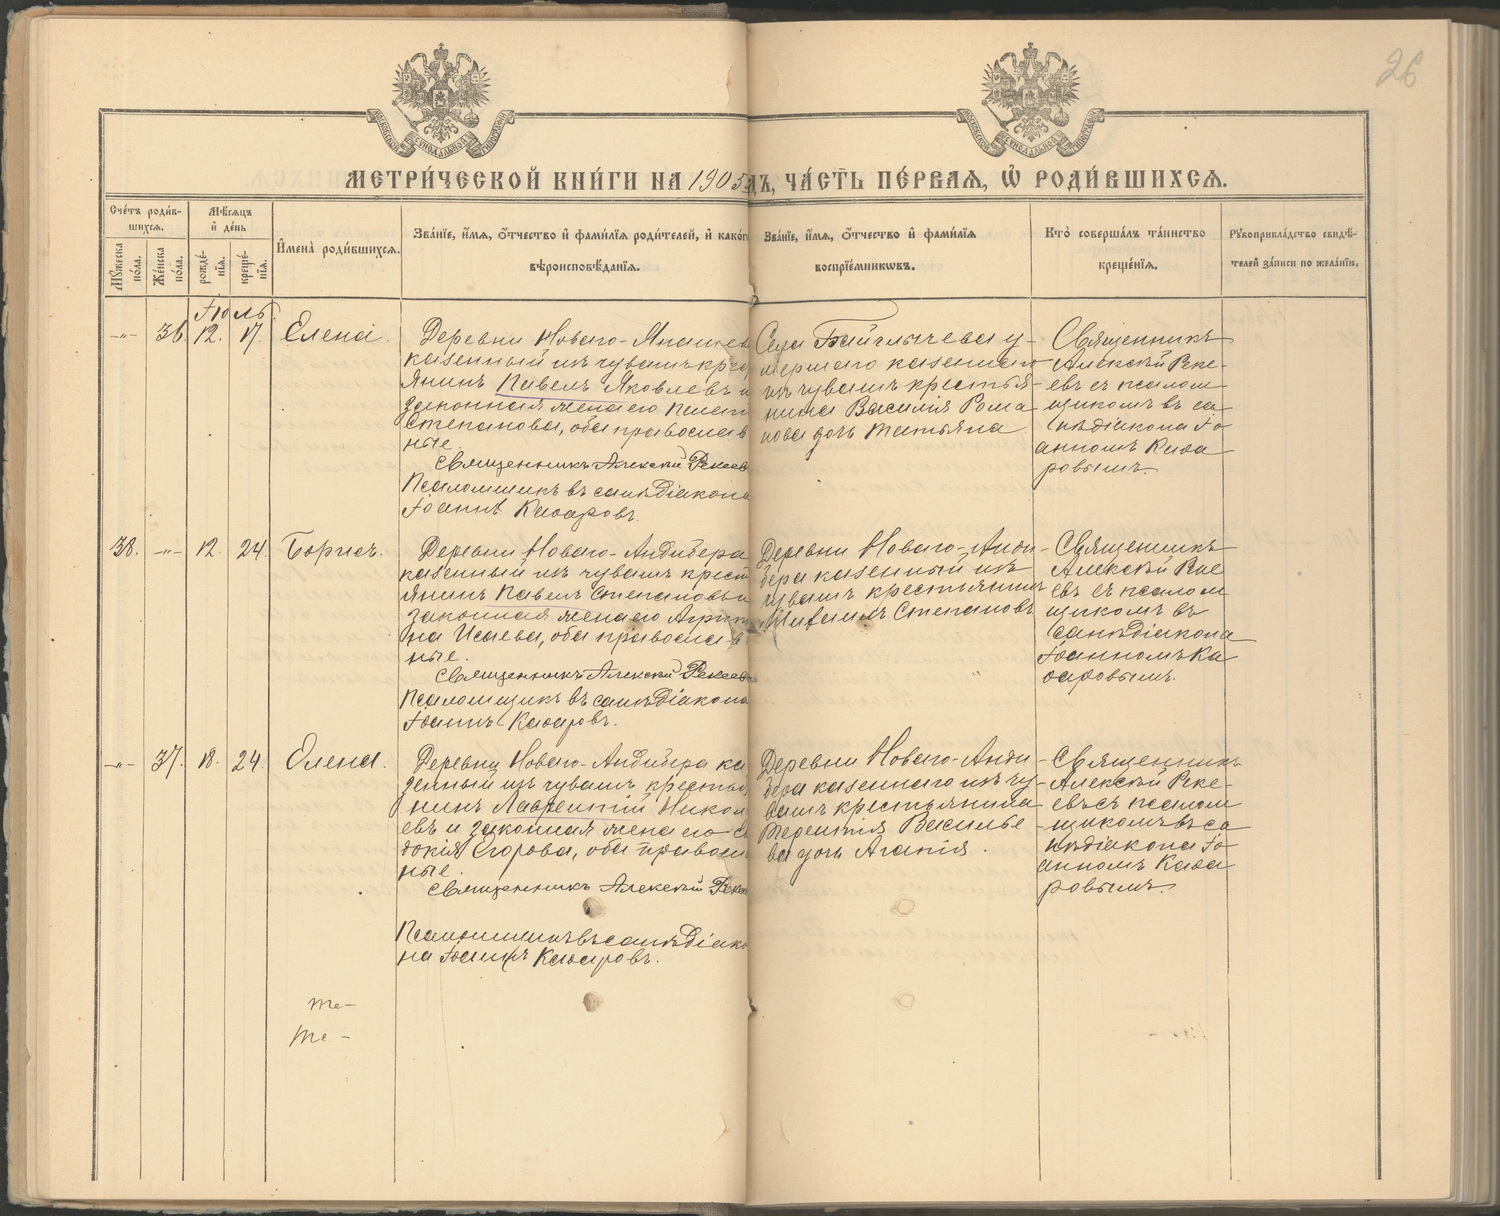 26
МОСКОВСКОЙ СѴНОДАЛЬНОЙ ТИПОГРАФІИ
МОСКОВСКОЙ СѴНОДАЛЬНОЙ ТИПОГРАФІИ
МЕТРИ́ЧЕСКОЙ КНИ́ГИ НА 1905 ДЪ, ЧА́СТЬ ПЕ́РВАЯ, Ѡ РОДИ́ВШИХСЯ.
Сче́тъ роди́в-
шихся.
Му́жеска
по́ла.
Же́нска
по́ла.
Мѣ́сяцъ
и҆ де́нь
рожде́-
нія.
креще́-
нія.
И҆мена̀ роди́вшихся.
Зва́ніе, и҆́мя, о҆́тчество и҆ фами́лія роди́телей, и҆ како́г
вѣроисповѣ́данія.
Зва́ніе, и҆́мя, о҆́тчество и҆ фами́лія
воспріе́мниковъ.
Кто̀ соверша́лъ та́инство
креще́нія.
Рукоприкла́дство свидѣ́-
телей за́писи по жела́нію.
Іюль
-"- 36. 12. 17. Елена.
Деревни Новаго-
казенный изъ чувашъ кре
янинъ Павелъ Яковлевъ и
законная жена его
Степанова, оба православ
ные.
Священникъ Алексѣй Рекеев
Псаломщикъ въ санѣ Діакона
Іоаннъ Казаровъ.
Села Байглычева у-
мершаго казеннаго
изъ чувашъ крестья-
нина Василія Рома
нова дочь Татьяна
Священникъ
Алексѣй Реке-
евъ съ псалом
щикомъ въ са
нѣ діакона Іо
анномъ Каза
ровымъ.
38. -"- 12. 24. Борисъ.
Деревни Новаго-Андибера
казенный изъ чувашъ крест
янинъ Павелъ Степановъ и
законная жена его Агрип
на Исаева, оба православ
ные.
Священникъ Алексѣй Рекеев
Псаломщикъ въ санѣ Діакона
Іоаннъ Казаровъ.
Деревни Новаго-Анди-
бера казенный изъ
чувашъ крестьянинъ
Степановъ
Священникъ
Алексѣй Рек
евъ съ псалом
щикомъ въ
санѣ діакона
Іоанномъ Ка
заровымъ.
-"- 37. 18. 24. Елена.
Деревни Новаго-Андибера ка
зенный изъ чувашъ крестья
нинъ Лаврентій Никол
евъ и законная жена его Ев
докія Егорова, оба правосл
ные.
Священникъ Алексѣй Реке
Псаломщикъ въ санѣ Діако
на Іоаннъ Казаровъ.
Деревни Новаго-Анди-
бера казеннаго изъ чу-
вашъ крестьянина
Терентія Василье
ва дочь Агапія.
Священникъ
Алексѣй Реке-
евъ съ псалом
щикомъ въ са
нѣ діакона Іо-
анномъ Каза
ровымъ.